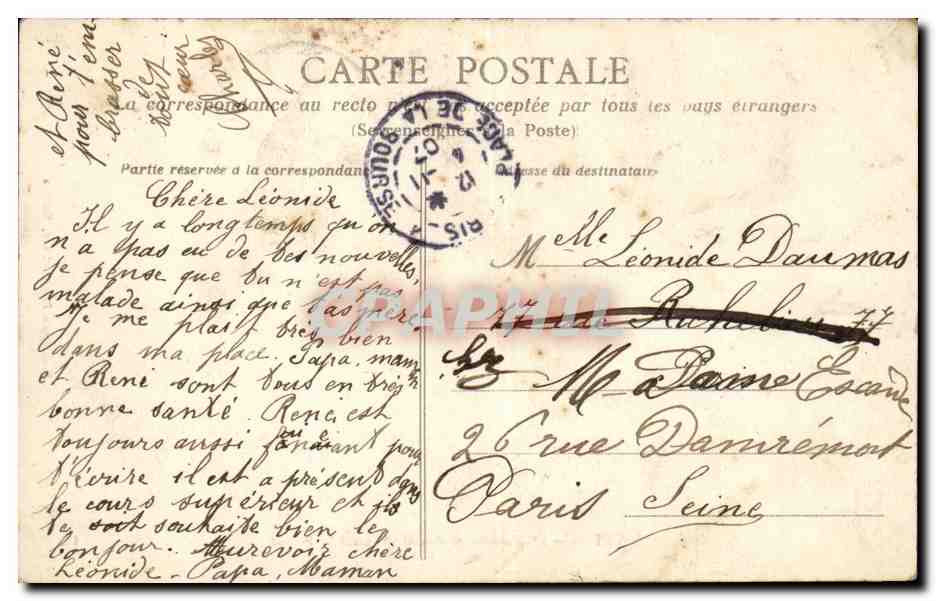 CARTE POSTALE
La correspondance au recto n'est pas acceptée par tous les pays étrangers
(Se renseigner à la Poste)
Partie réservée à la correspondance
Adresse du destinataire
PARIS PLACE DE LA BOURSE
12 - 11
4 - 07
Chère Léonide
Il y a longtemps qu'on
n a pas eu de tes nouvelles,
je pense que tu n'est pas
malade ainsi que ta père
Je me plait très bien
dans ma place. Papa, maman
et René sont tous en très
bonne santé. René est
toujours aussi fainéant pour
t'écrire il est a présent dans
le cours supérieur et ils
te souhaite bien le
bonjour. Aurevoir chère
Léonide - Papa, Maman
et René
pour t'em
brasser
de
tout
cœur
Charles
Melle Léonide Daumas
77 rue Richelieu 77
chez
Madame Escande
26 rue Damrémont
Paris Seine
CPAPHIL